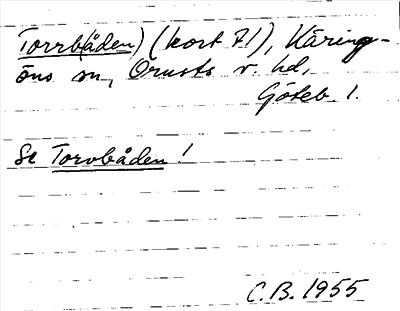 Torrbåden) (kort 71), Käring-
öns sn, Orusts v. hd,
Göteb. l.
Se Torvbåden!
C.B. 1955